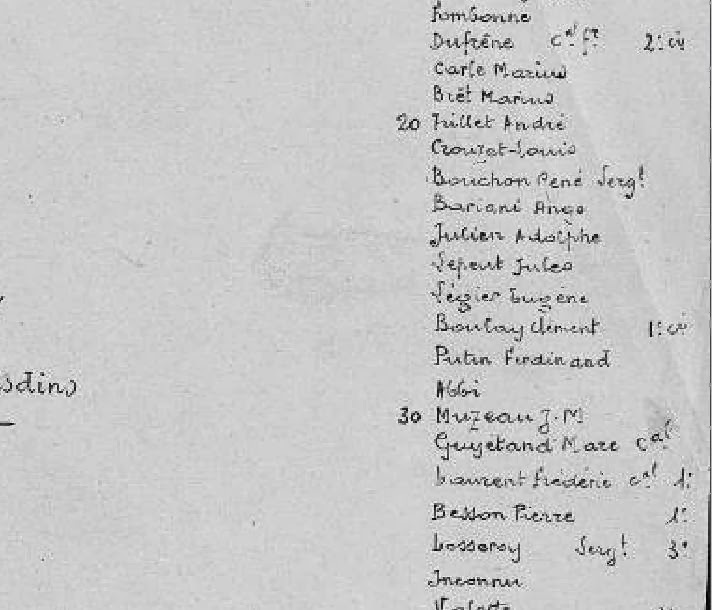 Pombonne
Dufrêne cal fr 2: cie
Carle Marius
Brêt Marius
20 Juillet André
Crouzet-Louis
Bouchon René Sergt
Bariani Ange
Julien Adolphe
Lepeut Jules
Légier Eugène
Boulay Clément 1: cie
Putin Ferdinand
Abbi
30 Muzeau J.M
Guyetand Marc cal
Laurent Frédéric cal 1:
Besson Pierre 1:
Losseroy Sergt 3e
Inconnu